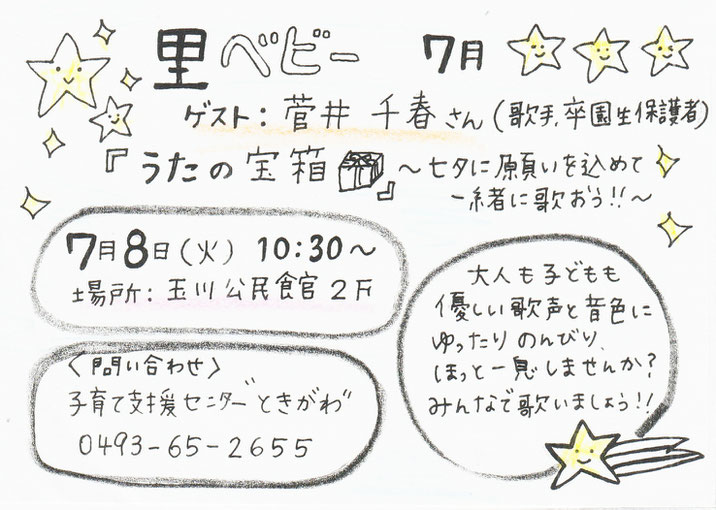 里ベビー 7月
ゲスト：菅井 千春さん（歌手、卒園生保護者）
『うたの宝箱』～七夕に願いを込めて
一緒に歌おう!!～
7月8日（火） 10:30～
場所：玉川公民館 2F
〈問い合わせ〉
子育て支援センター"ときがわ"
0493-65-2655
大人も子どもも
優しい歌声と音色に
ゆったり のんびり、
ほっと一息しませんか？
みんなで歌いましょう!!